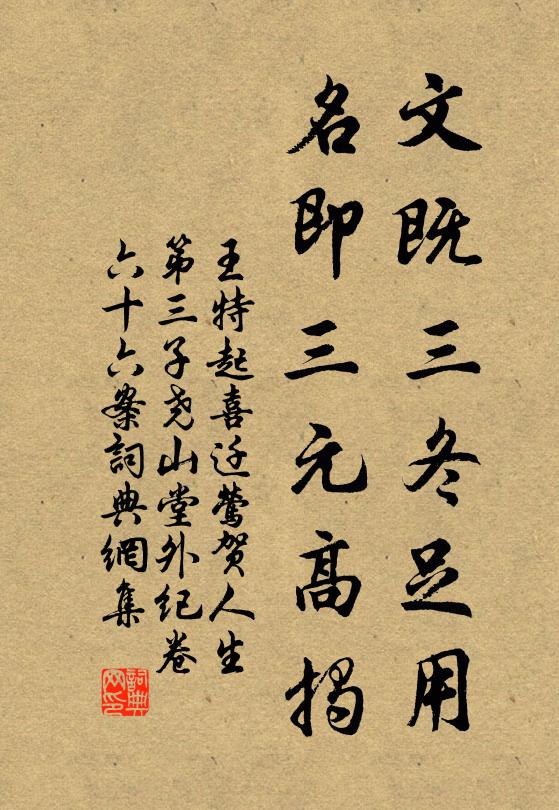 文既三冬足用
名即三元高揭
王特起喜迁莺贺人生
第三子尧山堂外纪卷
六十六案詞典網集
詞典
网印